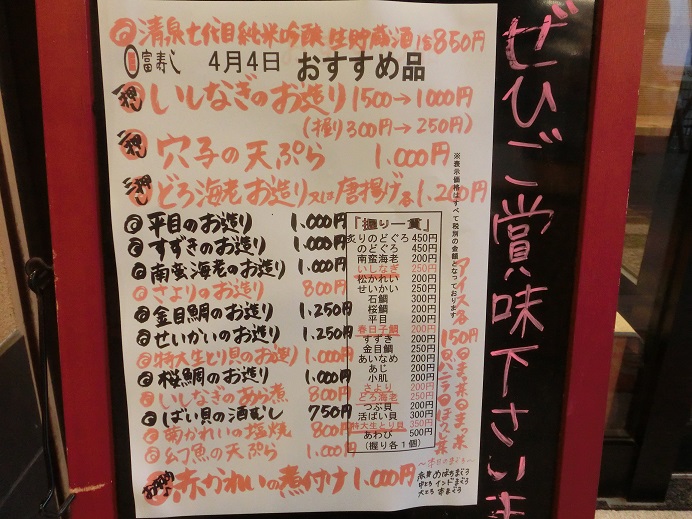 ◎清泉七代目純米吟醸生貯蔵酒 1合850円
富寿し 4月4日 おすすめ品
一押し いしなぎのお造り 1500→1000円
(握り300円→250円)
二押し 穴子の天ぷら 1.000円
三押し どろ海老お造り又は唐揚げ各1.200円
◎平目のお造り 1.000円
◎すずきのお造り 1.000円
◎南蛮海老のお造り 1.000円
◎さよりのお造り 800円
◎金目鯛のお造り 1.250円
◎せいかいのお造り 1.250円
◎特大生とり貝のお造り 1.000円
◎桜鯛のお造り 1.000円
◎いしなぎのあら煮 800円
◎ばい貝の酒むし 750円
◎菊かれいの塩焼 800円
◎幻魚の天ぷら 1.000円
赤かれいの煮付け 1.000円
『握り一貫』
炙りのどぐろ 450円
のどぐろ 450円
南蛮海老 200円
いしなぎ 250円
松かれい 200円
せいかい 250円
石鯛 300円
桜鯛 200円
平目 200円
春日子鯛 200円
すずき 200円
金目鯛 250円
あいなめ 200円
あじ 200円
小肌 200円
さより 200円
どろ海老 250円
つぶ貝 200円
活ばい貝 300円
特大生とり貝 350円
あわび 500円
(握り各1個)
※表示価格はすべて税別の金額となっております
アイス各150円
◎まっ茶
◎バニラ
◎ほうじ茶
～本日のまぐろ～
赤身 めばちまぐろ
中とろ インドまぐろ
大とろ 本まぐろ
ぜひご賞味下さいま